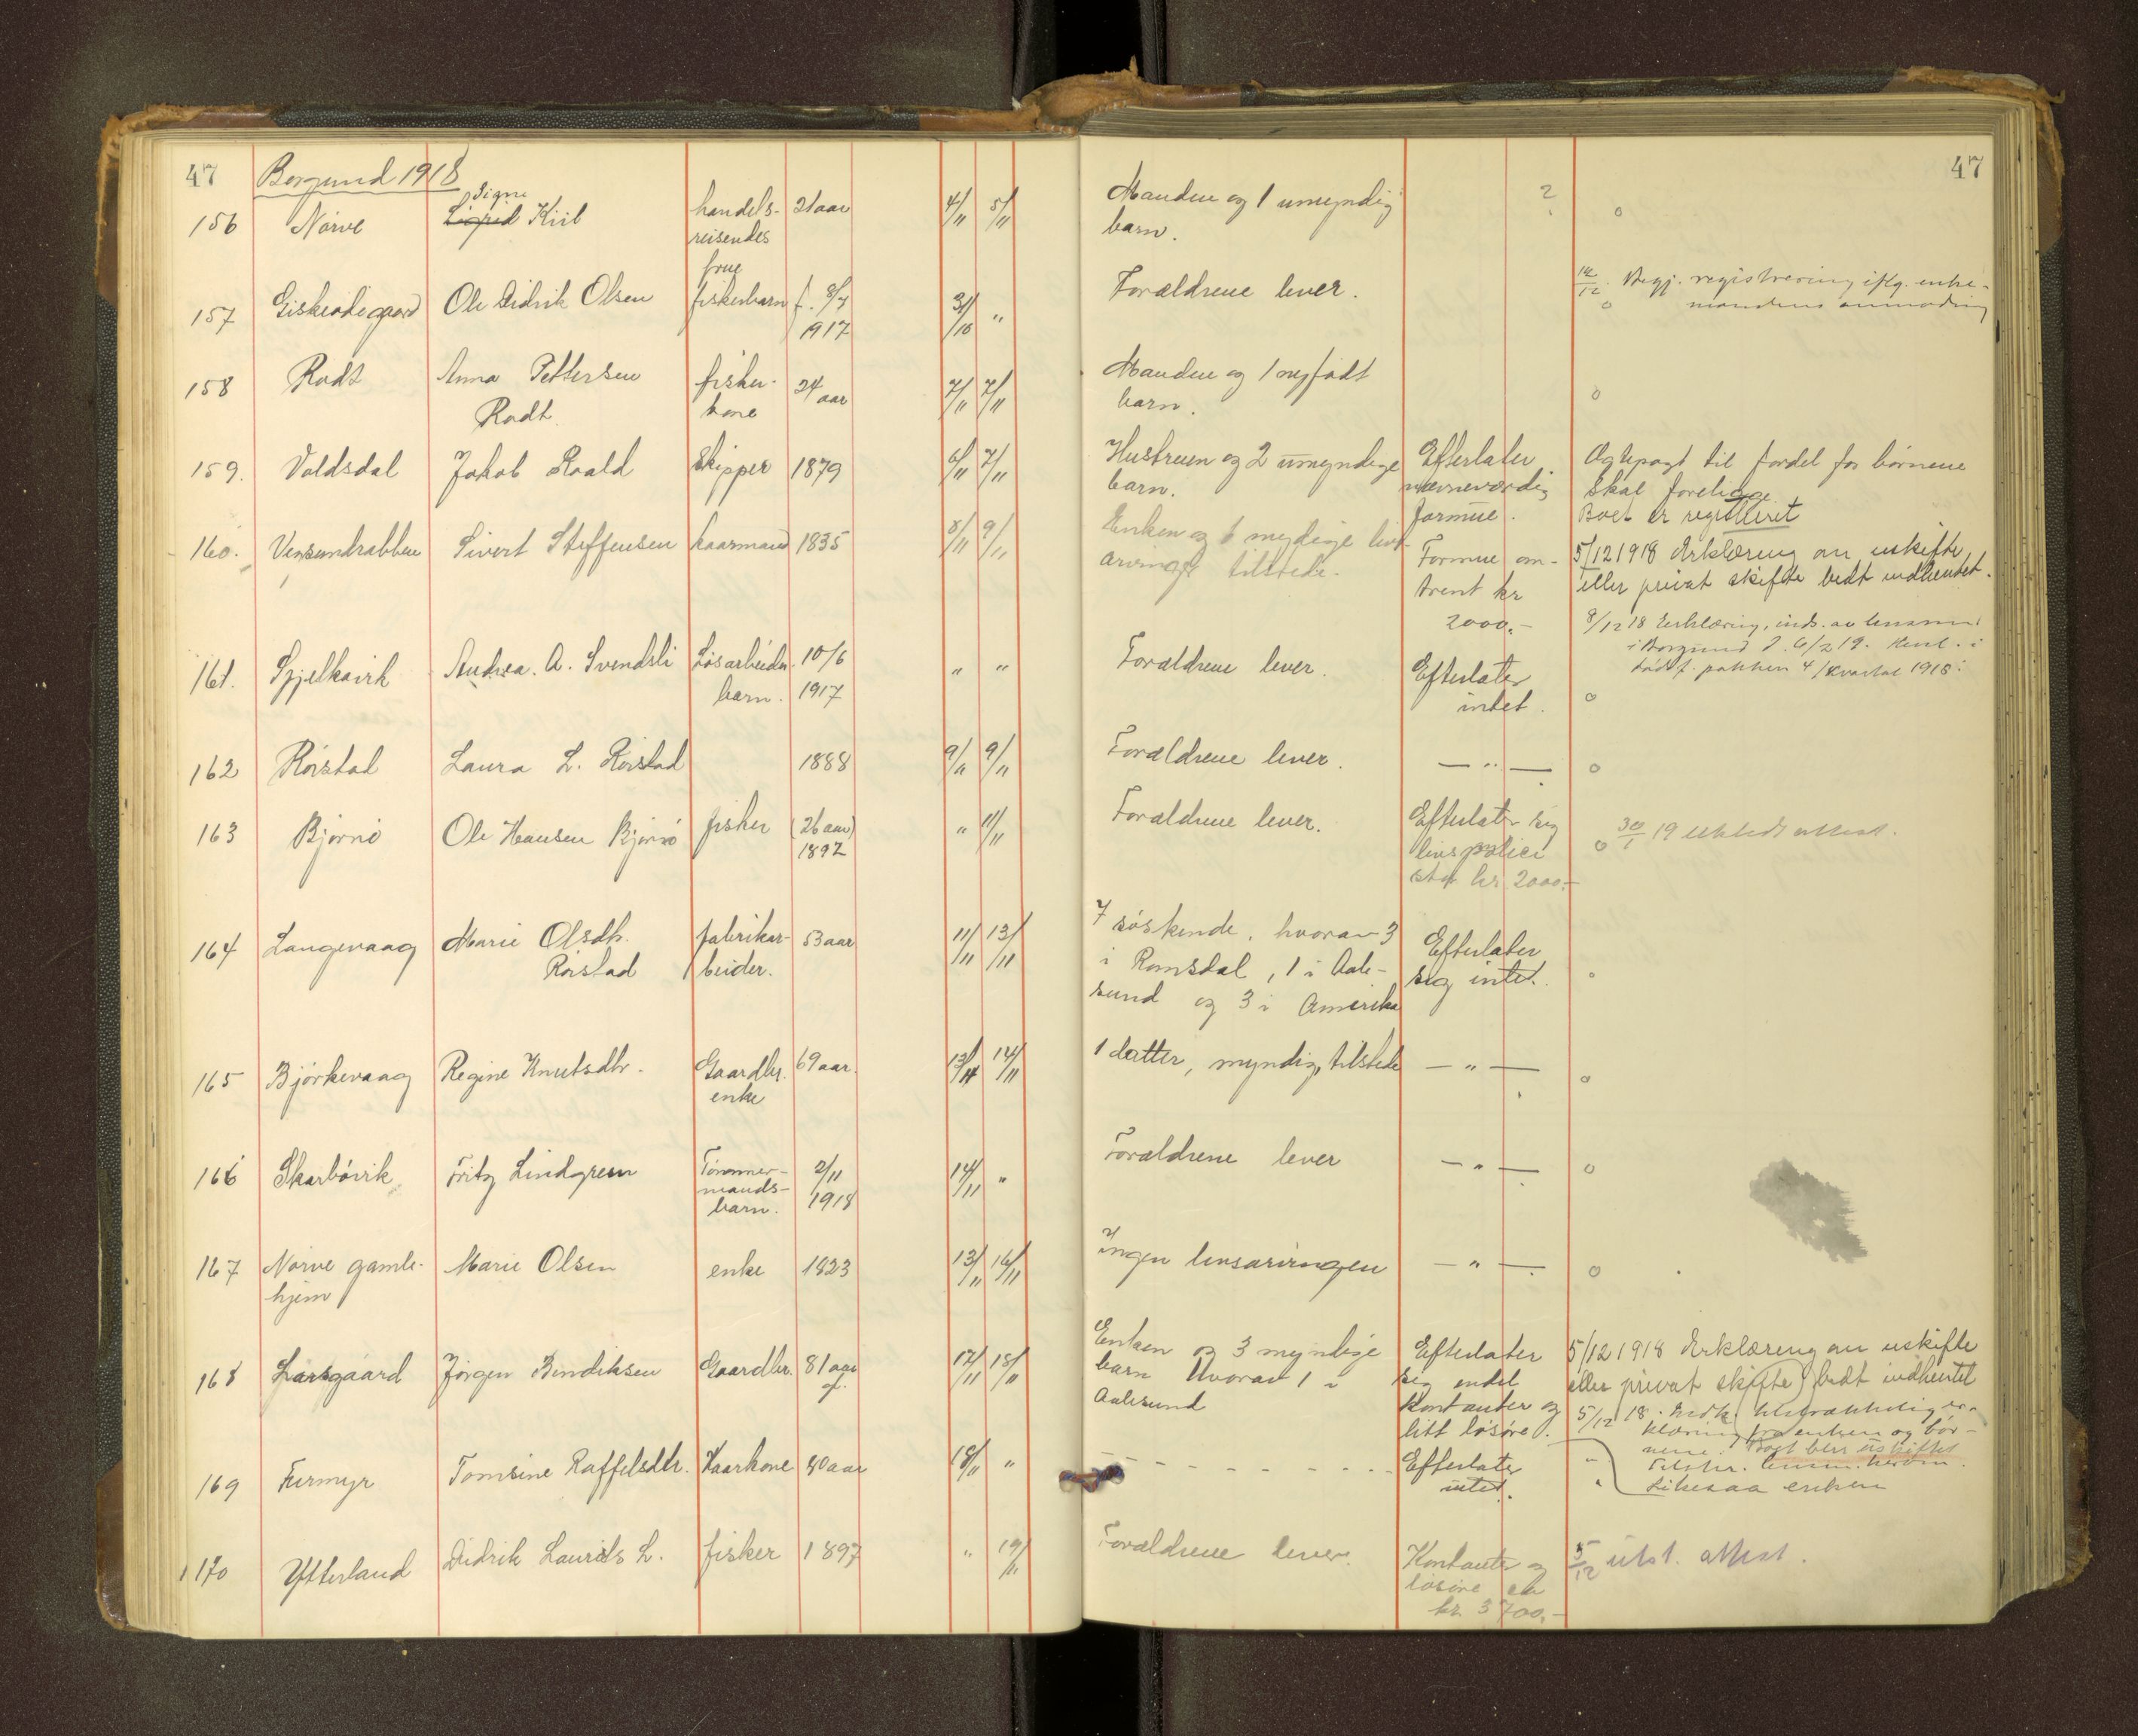 47 Borgund 1918 47
Signe
156 Nørve Sigrid Kiil handels- 21 aar 4/11 5/11 Manden og 1 umyndig ? o
reisendes barn.
frue
157 Giskeødegaard Ole Didrik Olsen fiskerbarn f. 8/7 31/10 " Forældrene lever. 14/12 Begj. registrering iflg. enke-
1917 o mandens anmodning
158 Rødt Anna Pettersen fisker- 24 aar 7/11 7/11 Manden og 1 nyfødt o
Rødt kone barn.
159. Valdsdal Jakob Roald Skipper 1879 6/11 7/11 Hustruen og 2 umyndige Efterlater Ægtepagt til fordel for børnene
barn. nævneværdig skal foreligge.
formue. Boet er registreret
160. Sivert Steffensen kaarmand 1835 8/11 9/11 Enken og myndige livs- Formue om- 5/12 1918 Erklæring om uskifte
arvinge tilstede. trent kr eller privat skifte bedt indhentet.
2000,- 8/12 18 Erklæring, inds. av lensm.
i Borgund d. 6/2 19. Henl. i
161. Spjelkavik Andrea. A. Svendsli Løsarbeider 10/6 " " Forældrene lever. Efterlater dødsf. pakken 4/kvartal 1918.
barn. 1917 intet. o
162 Rørstad Laura L. Rørstad 1888 9/11 9/11 Forældrene lever. — " — o
163 Bjørnø Ole Hansen Bjørnø fisker (26 aar) " 11/11 Forældrene lever. Efterlater sig o 30/1 19 utstedt attest.
1892 livspolice
stor kr 2000.-
164 Langevaag Marie Olsdtr. fabrikar- 53 aar 11/11 13/11 7 søskende, hvorav 3 Efterlater o
Rørstad beider. i Romsdal, 1 i Aale- sig intet.
sund og 3 i Amerika
165 Bjørkevaag Regine Knutsdtr. Gaardbr. 69 aar. 13/11 14/11 1 datter, myndig, tilstede — " — o
enke
166 Skarbøvik Fritz Lindgren Tømmer- 2/11 14/11 " Forældrene lever — " — o
mands- 1918
barn.
167 Nørve gamle- Marie Olsen enke 1823 13/11 16/11 Ingen livsarvingen — " — o
hjem
168 Larsgaard Jørgen Bendiksen Gaardbr. 81 aar 17/11 18/11 Enken og 3 myndige Efterlater 5/12 1918 Erklæring om uskifte
barn Hvorav 1 i sig endel eller privat skifte bedt indhentet
Aalesund kontanter og 5/12 18. Indk. er-
litt løsøre. klæring fra enken og bør-
nene. Boet blir uskiftet
169 Furmyr Tomsine Raffelsdtr. Kaarkone 80 aar 18/11 " - - - - - - - - - Efterlater " Tilskr. lensm. herom.
intet. " Likesaa enken
170 Ytterland Didrik Laurits L. fisker 1897 " 19/11 Forældrene lever. Kontanter og 5/12 utst. attest.
løsøre ca
kr 3700,-